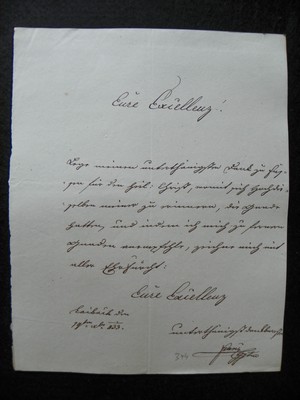 Eure Excellenz!
Lege meinen unterthänigsten Dank zu Füs-
sen für den heil. Christ, womit sich Hochdie-
selben meiner zu erinnern, die Gnade
hatten, und indem ich mich zu fernern
Gnaden anempfehle, zeichne mich mit
aller Ehrfurcht:
Eure Excellenz
Laibach den
unterthänigst dankbarster